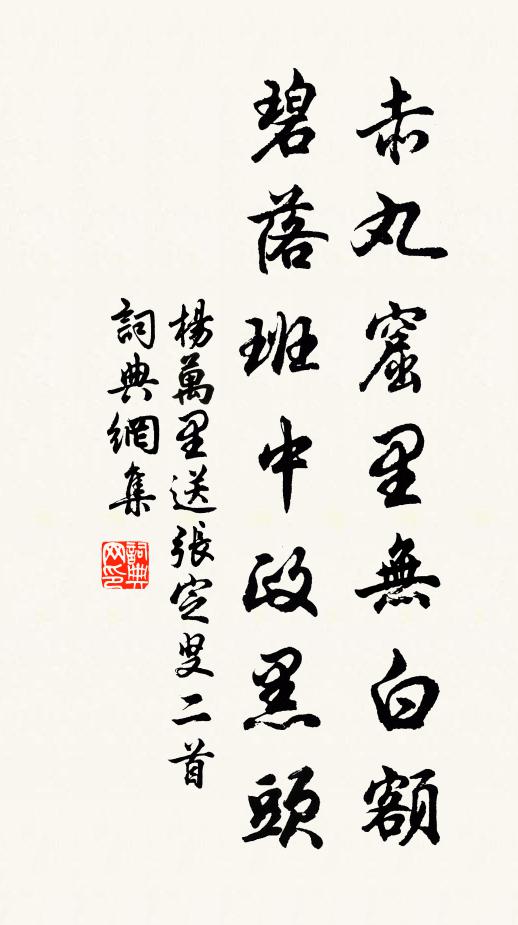 赤丸窟里無白額
碧落班中政黑頭
楊萬里送張定叟二首
詞典網集
詞典网印